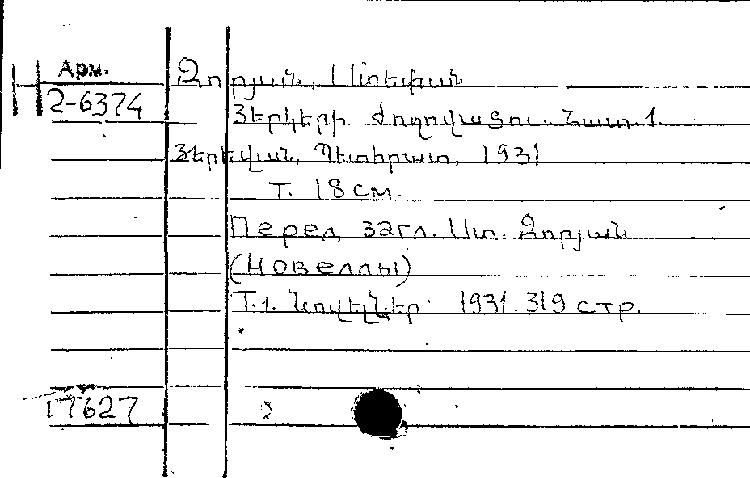 Арм.
Զորյան, Ստեփան
2-6374
Յերկերի ժողովածու. Նատ 1.
Յերեվան, Պետհրատ, 1931
Т. 18 см.
Перед загл. Ստ. Զորյան
(Новеллы)
Т.1. Նովելներ. 1931. 319 стр.
17627